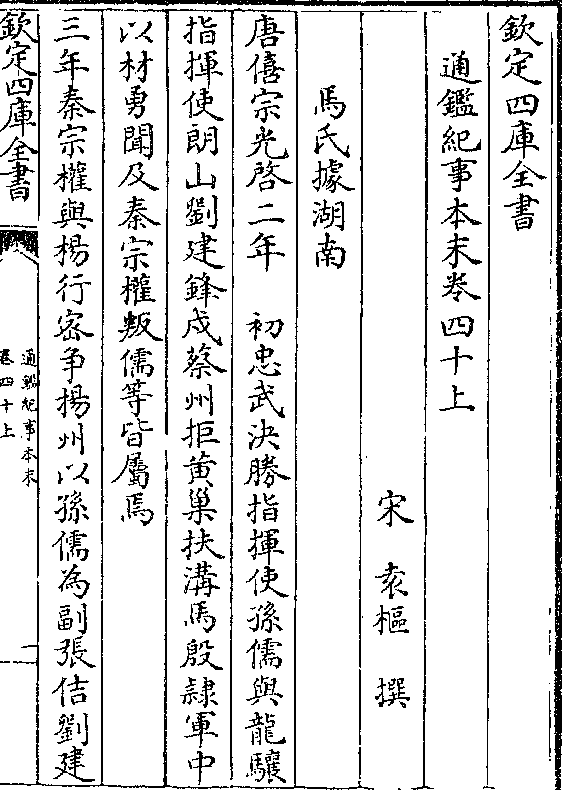 欽定四庫全書
通鑑紀事本末卷四十上
宋 袁樞 撰
馬氏據湖南
唐僖宗光啓二年 初忠武決勝指揮使孫儒與龍驤
指揮使朗山劉建鋒戍蔡州拒黄巢扶溝馬殷隷軍中
以材勇聞及秦宗權叛儒等皆屬焉
三年秦宗權與楊行宻争揚州以孫儒為副張佶劉建
欽定四庫全書
通鑑紀事本末
卷四十上
一